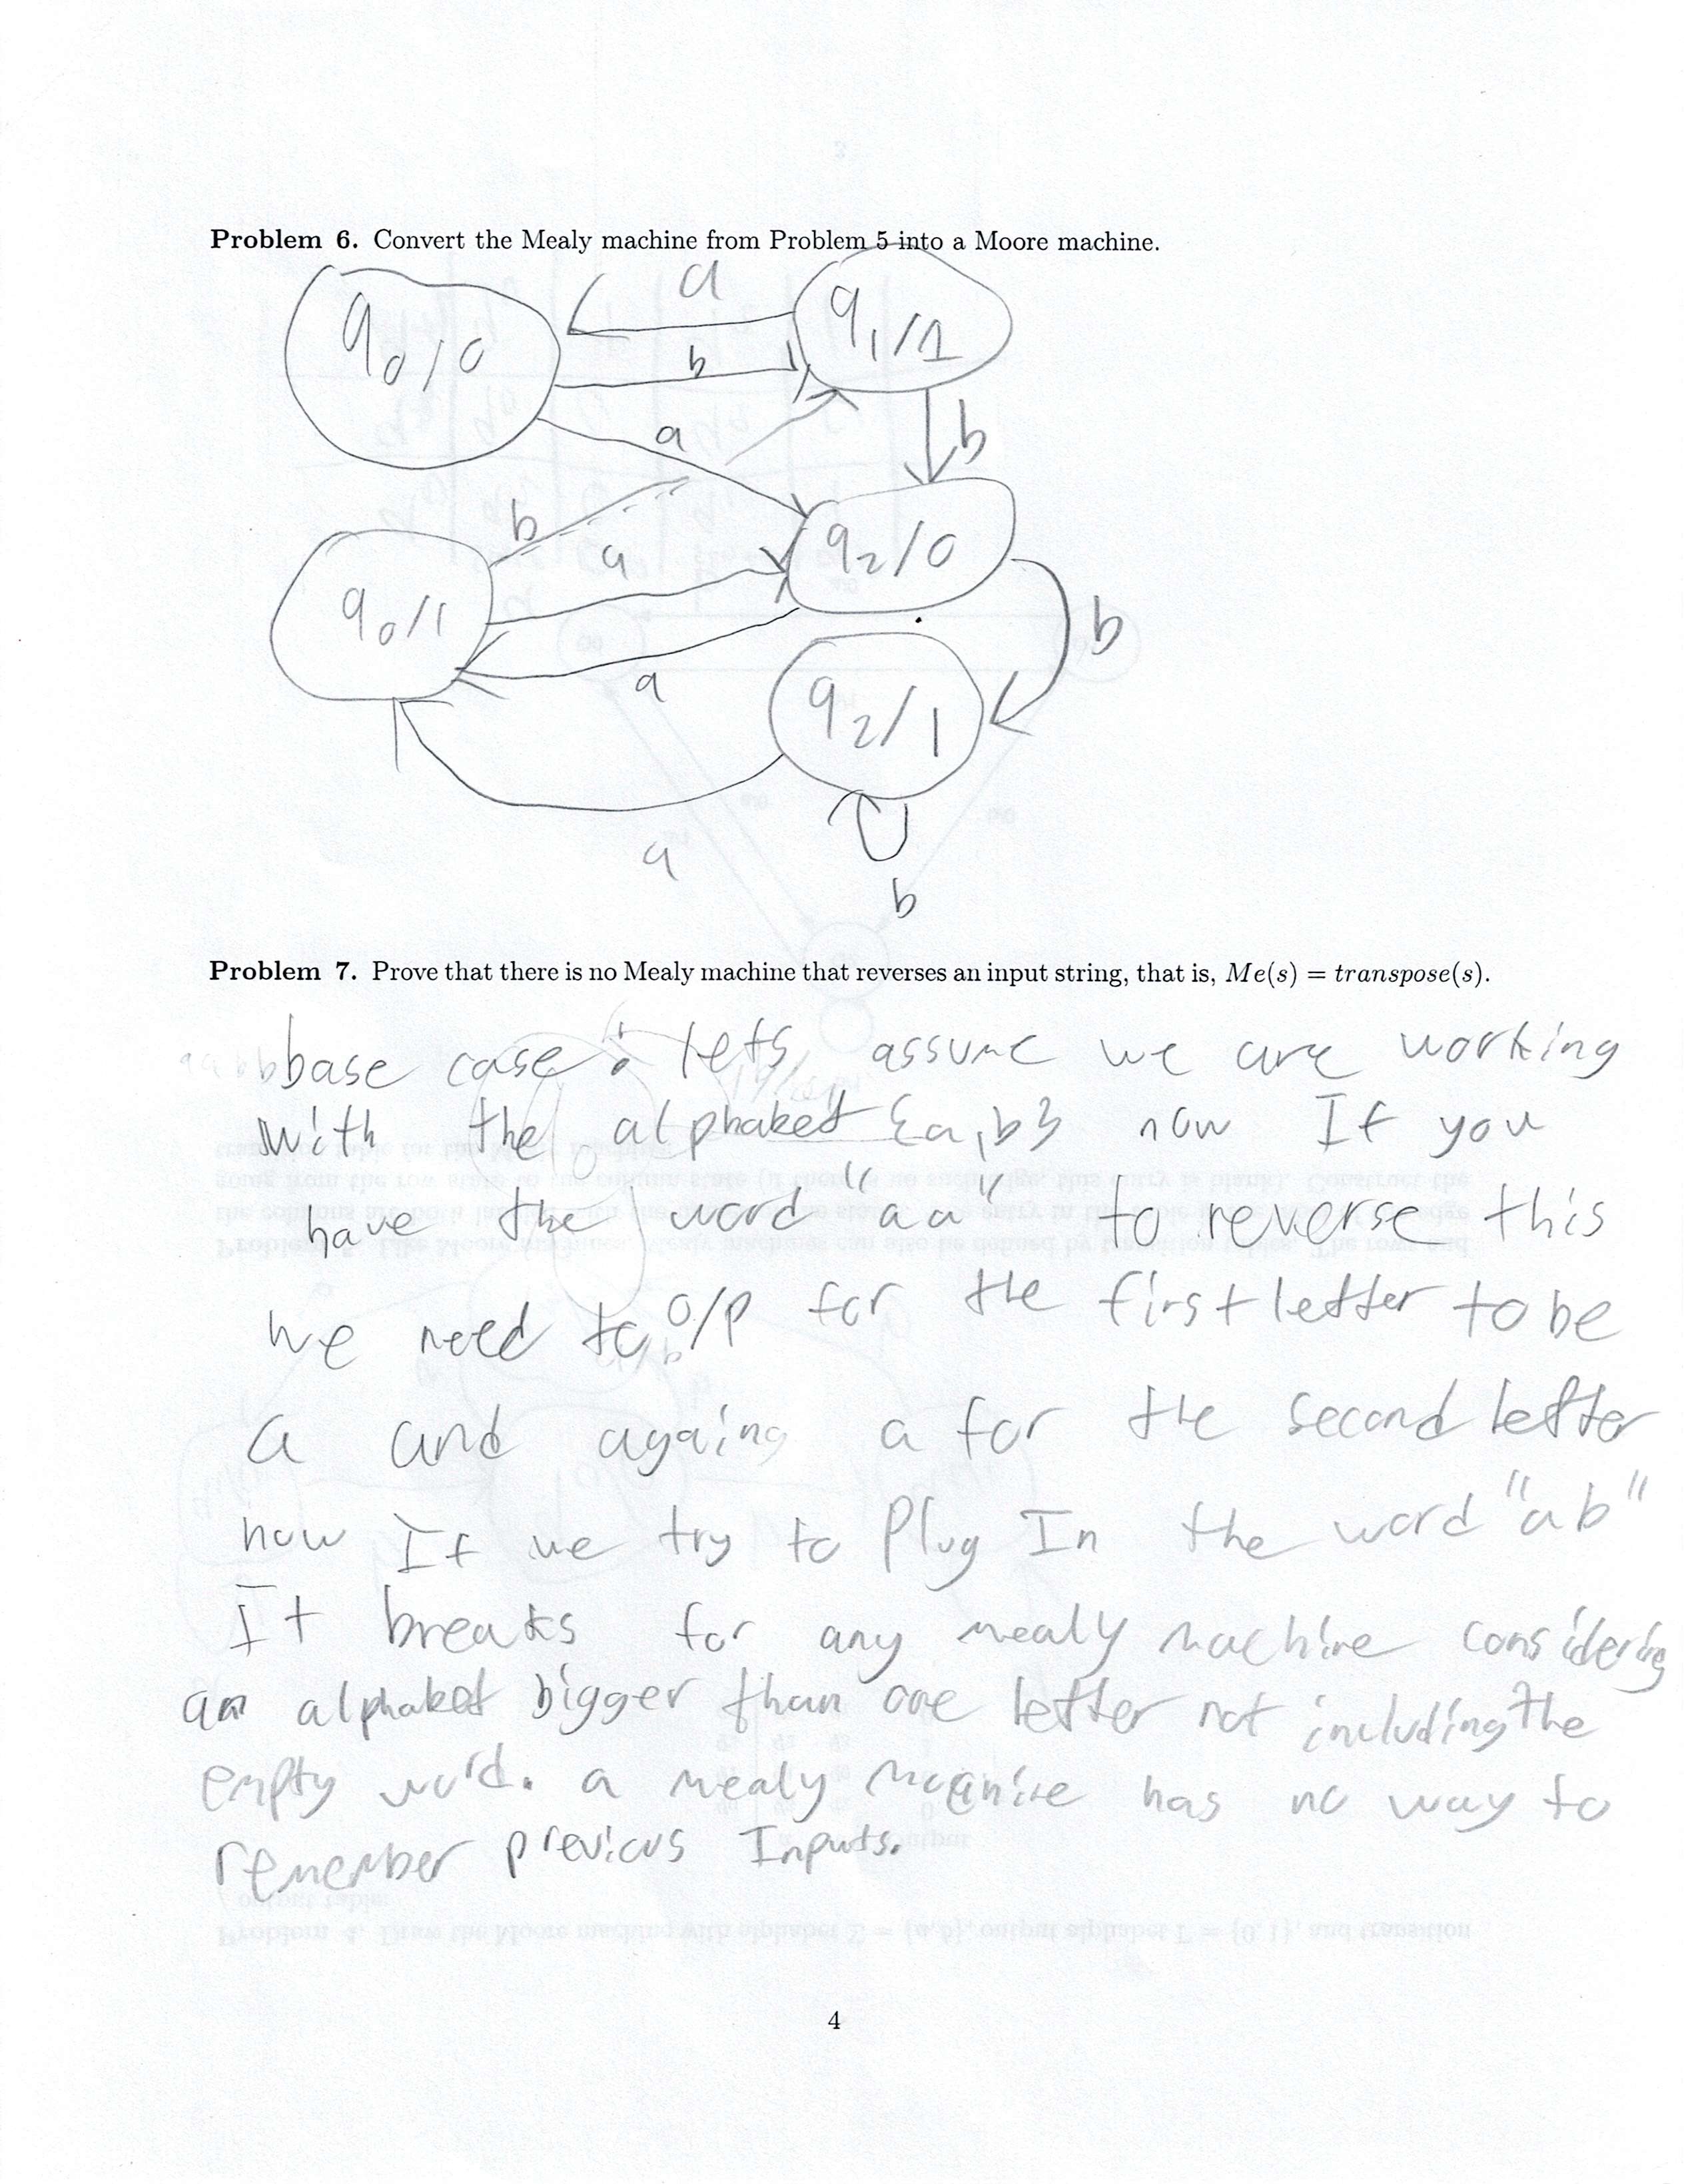 Problem 6. Convert the Mealy machine from Problem 5 into a Moore machine.
a
q0/0
q1/1
b
a
b
b
a
q2/0
q0/1
b
a
q2/1
a
b
Problem 7. Prove that there is no Mealy machine that reverses an input string, that is, Me(s) = transpose(s).
base case: lets assume we are working
with the alphabet {a,b} now If you
have the word "aa" to reverse this
we need to o/p for the first letter to be
a and againg a for the second letter
now If we try to Plug In the word "ab"
It breaks for any mealy machine considering
an alphabet bigger than one letter not including the
empty word. a mealy machine has no way to
remember previous Inputs.
4